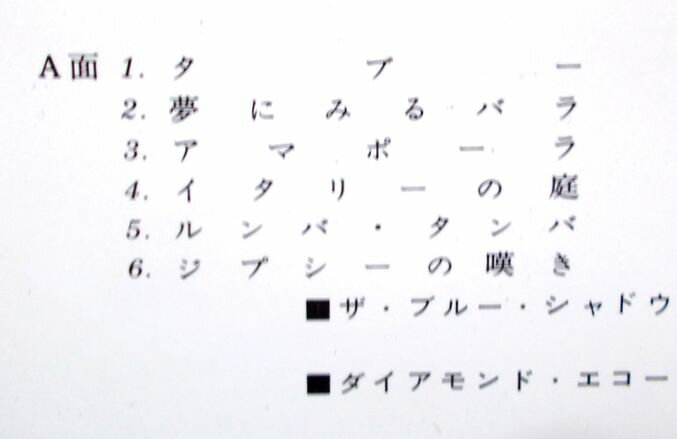 A面 1. タブー
2. 夢にみるバラ
3. アマポーラ
4. イタリーの庭
5. ルンバ・タンバ
6. ジプシーの嘆き
■ザ・ブルー・シャドウ
■ダイアモンド・エコー